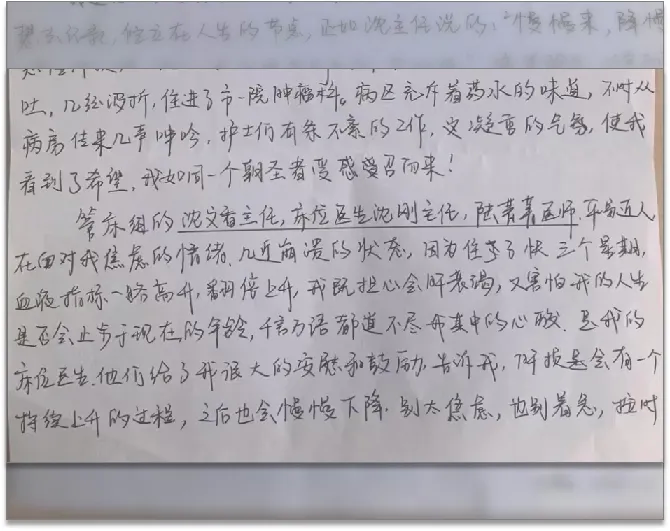 站立在人生的节点，正如沈主任说的："慢慢来，降慢
吐，几经波折，住进了市一院肿瘤科。病区充斥着药水的味道，不时从
病房传来几声呻吟，护士们有条不紊的工作，安凝宁的气氛，使我
看到了希望，我如同一个朝圣者受感受召而来！
管床组的沈文香主任，床位医生沈刚主任，陆菁菁医师，平易近人
在面对我焦虑的情绪、几近崩溃的状态，因为住了快三个星期，
血液指标一路高升，翻倍上升，我既担心会肝衰竭，又害怕我的人生
是否会止步于现在的年龄，千言万语都道不尽我其中的心酸．是我的
床位医生．他们给了我很大的安慰和鼓励．告诉我，肝损是会有一个
持续上升的过程，之后也会慢慢下降．别太焦虑，也别着急，按时